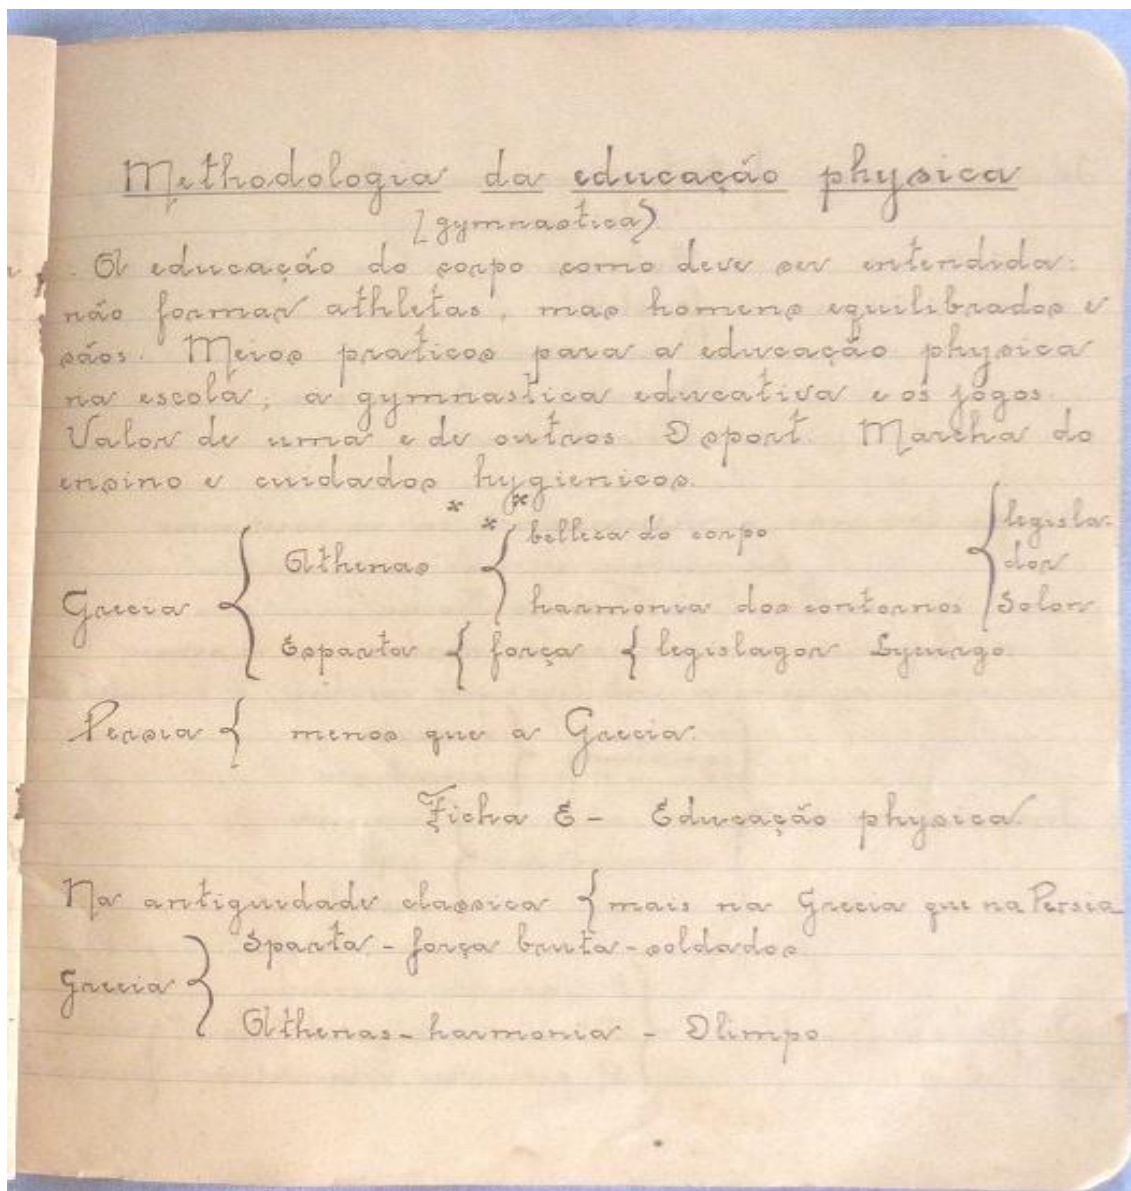 Methodologia da educação physica
(gymnastica)
. A educação do corpo como deve ser entendida:
não formar athletas, mas homens equilibrados e
sãos. Meios praticos para a educação physica
na escola; a gymnastica educativa e os jogos.
Valor de uma e de outros. O sport. Marcha do
ensino e cuidados hygienicos.
* * *
Grecia { Athenas { belleza do corpo
harmonia dos contornos { legisla-
dor
Solon
Esparta { força { legislagor Lycurgo
Persia { menos que a Grecia.
Ficha E - Educação physica
Na antiguidade classica { mais na Grecia que na Persia
Grecia } Sparta - força bruta - soldados
Athenas - harmonia - Olimpo